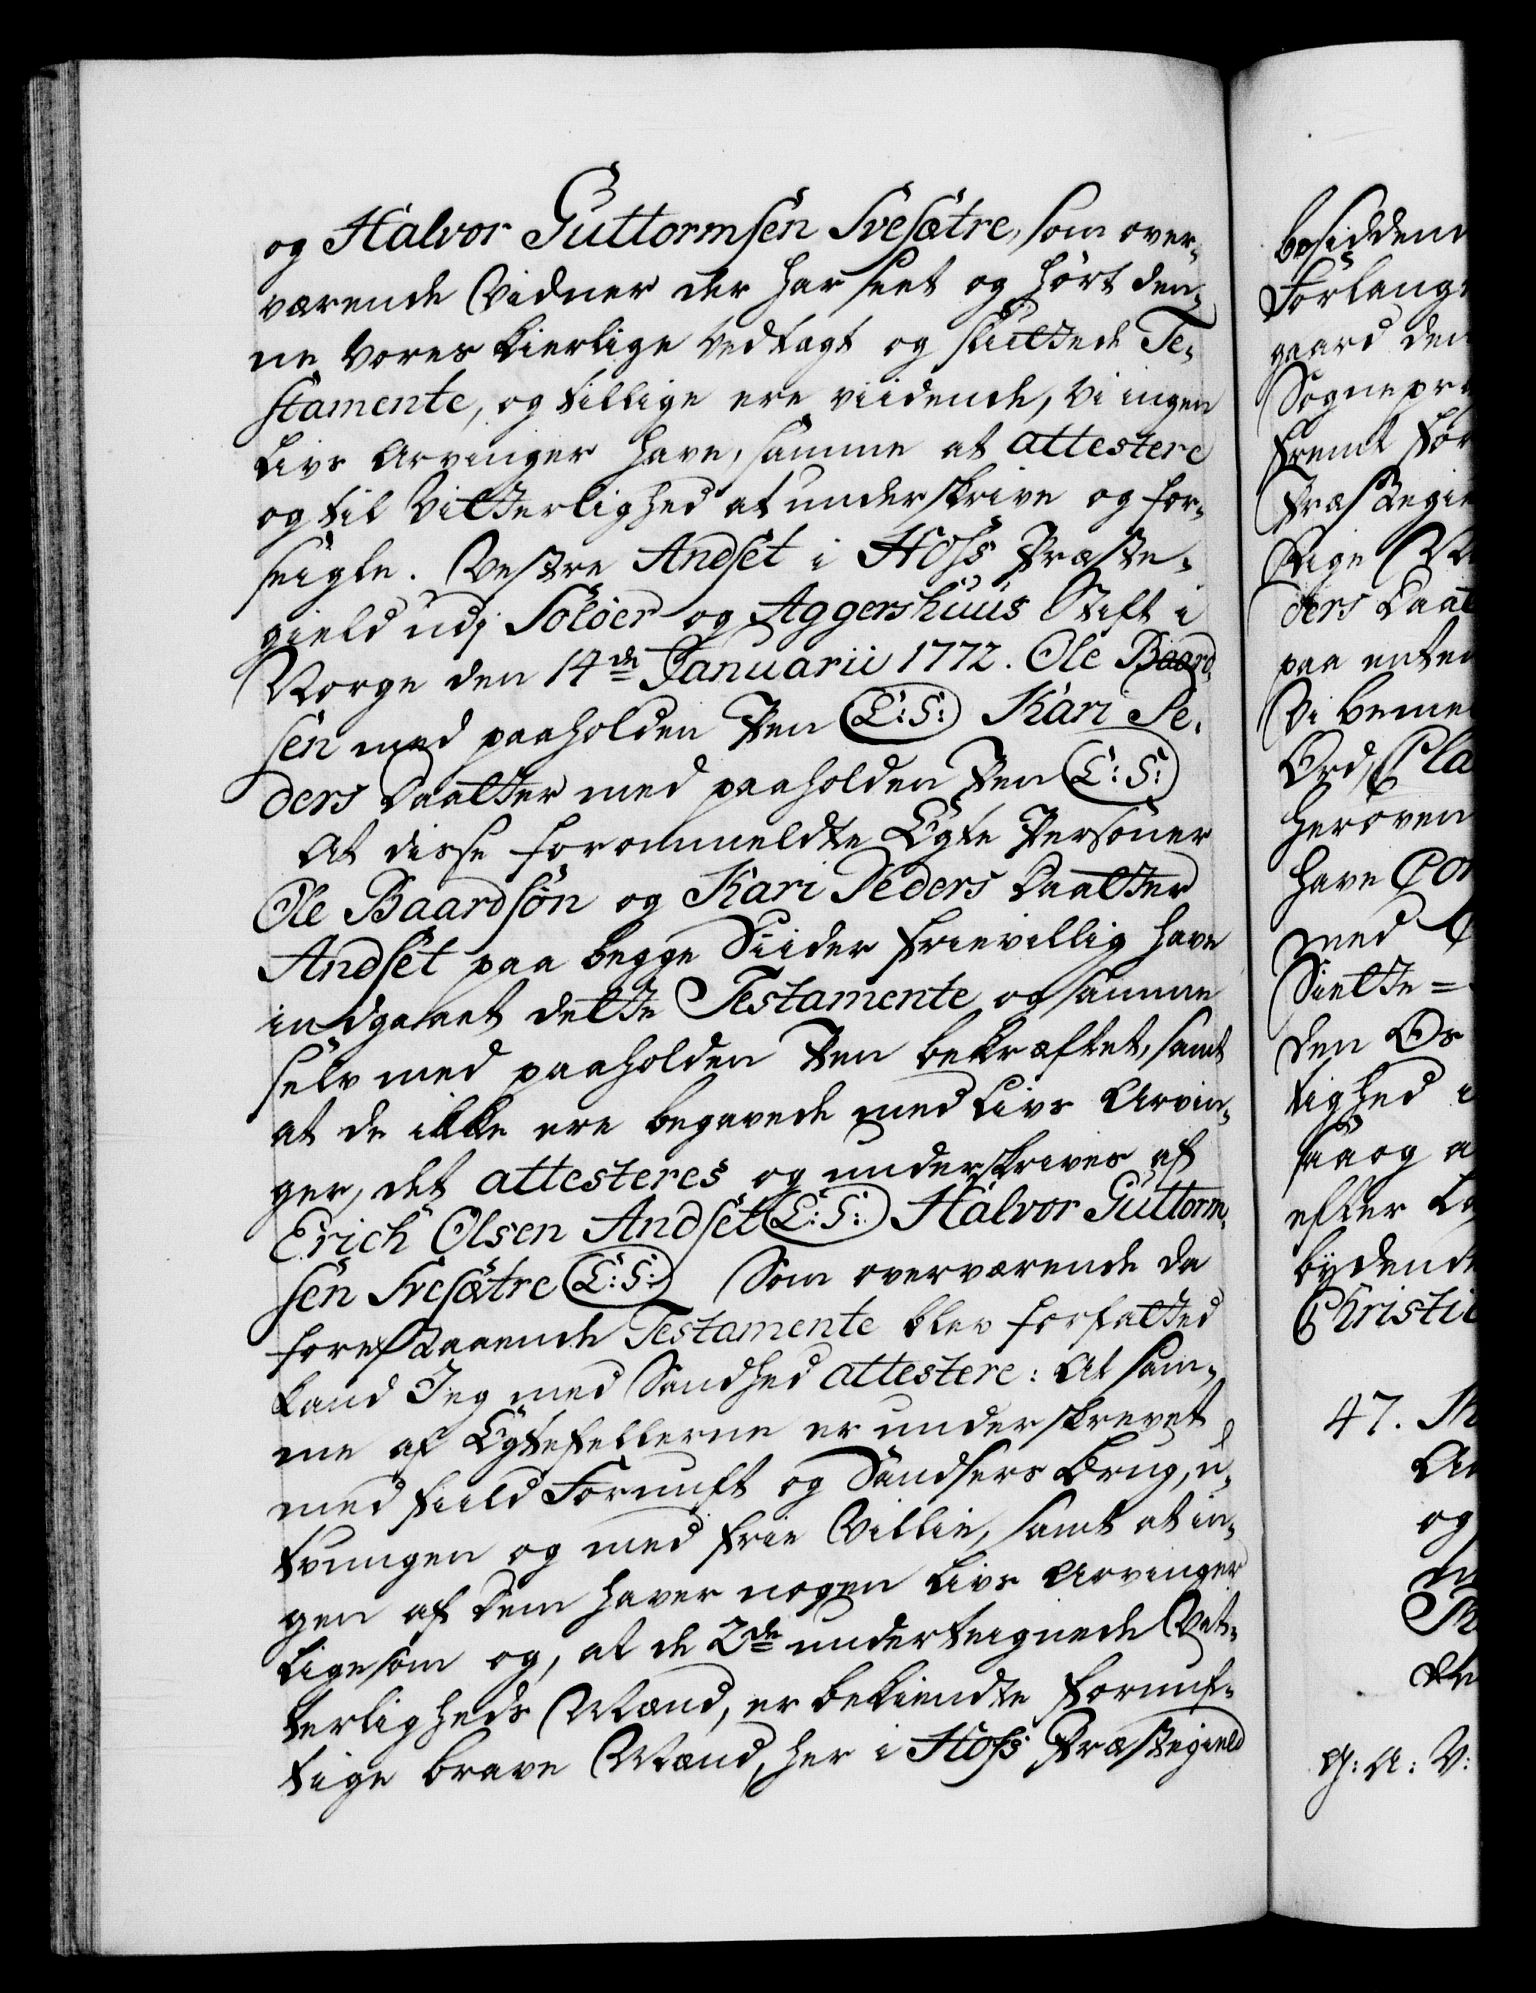 og Halvor Guttormsen Svesætre, som over¬
værende Vidner der har seet og hørt den¬
ne vores kierlige vedtagt og sluttede Te¬
stamente, og tillige ere viidende, vi ingen
Livs Arvinger have, samme at attestere
og til Vitterlighed at underskrive og for¬
seigle. Vestre Andset i Hofs Præste¬
gield udj Soløer og Aggershuus Stift i
Norge den 14de Januarii 1772. Ole Baard
sen med paaholden Pen (L:S:) Kari Pe¬
ders Daatter med paaholden Pen (L:S:)
At disse forommeldte Egte Personer
Ole Baardsøn og Kari Peders Daatter
Andset paa begge Siider frievillig have
indgaaet dette Testamente og samme
selv med paaholden Pen bekræftet, samt
at de ikke ere begavede med Livs Arvin¬
ger, det attesteres og underskrives af
Erich Olsen Andset (L:S:) Halvor Guttorm¬
sen Svesætre (L:S:) Som overværende da
forestaaende Testamente blev forfatted
kand Jeg med Sandhed attestere: At sam¬
me af Egtefellerne er underskrevet
med fuld Fornuft og Sandsers Brug, u¬
tvungen og med frie Villie, samt at in¬
gen af dem haver nogen Livs Arvinger
ligesom og, at de 2de underteignede Vit¬
terligheds Mænd, er bekiendte fornuf¬
tige brave Mænd, her i Hofs Præstegield
besiddend
Forlang
gaard den
Sognepræ
fremt for
Præstegie
Rige
ders Daat
paa enten
Vi bemel
Ord,
herover
have Con
med
Sielte=
den Or
tighed i
saa og a
efter
bydende
Christi
47.
og